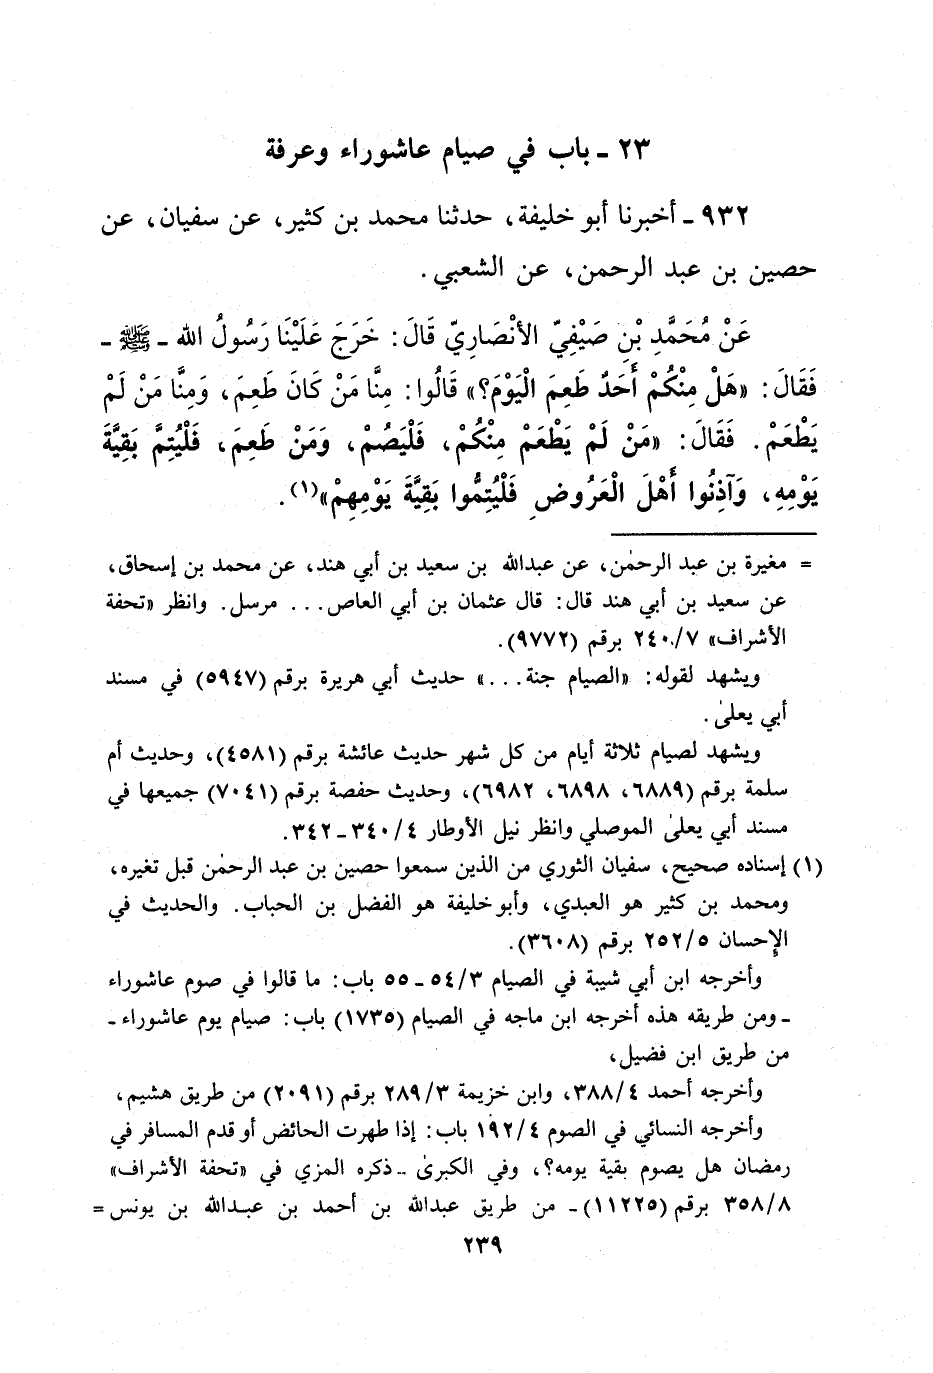 ٢٣ ـ باب في صيام عاشوراء وعرفة
٩٣٢ ـ أخبرنا أبو خليفة، حدثنا محمد بن كثير، عن سفيان، عن
حصين بن عبد الرحمن، عن الشعبي.
عَنْ مُحَمَّدِ بْنِ صَيْفِيّ الأنْصَارِيّ قَالَ: خَرَجَ عَلَيْنَا رَسُولُ الله ـ ﷺ ـ
فَقَالَ: «هَلْ مِنْكُمْ أَحَدٌ طَعِمَ الْيَوْمَ؟» قَالُوا: مِنَّا مَنْ كَانَ طَعِمَ، وَمِنَّا مَنْ لَمْ
يَطْعَمْ. فَقَالَ: «مَنْ لَمْ يَطْعَمْ مِنْكُمْ، فَلْيَصُمْ، وَمَنْ طَعِمَ، فَلْيُتِمَّ بَقِيَّةَ
يَوْمِهِ، وَآذِنُوا أَهْلَ الْعَرُوضِ فَلْيُتِمُّوا بَقِيَّةَ يَوْمِهِمْ»(١).
= مغيرة بن عبد الرحمٰن، عن عبدالله بن سعيد بن أبي هند، عن محمد بن إسحاق،
عن سعيد بن أبي هند قال: قال عثمان بن أبي العاص... مرسل. وانظر «تحفة
الأشراف» ٢٤٠/٧ برقم (٩٧٧٢).
ويشهد لقوله: «الصيام جنة...» حديث أبي هريرة برقم (٥٩٤٧) في مسند
أبي يعلىٰ.
ويشهد لصيام ثلاثة أيام من كل شهر حديث عائشة برقم (٤٥٨١)، وحديث أم
سلمة برقم (٦٨٨٩، ٦٨٩٨، ٦٩٨٢)، وحديث حفصة برقم (٧٠٤١) جميعها في
مسند أبي يعلىٰ الموصلي وانظر نيل الأوطار ٣٤٠/٤ ـ ٣٤٢.
(١) إسناده صحيح، سفيان الثوري من الذين سمعوا حصين بن عبد الرحمٰن قبل تغيره،
ومحمد بن كثير هو العبدي، وأبو خليفة هو الفضل بن الحباب. والحديث في
الإحسان ٢٥٢/٥ برقم (٣٦٠٨).
وأخرجه ابن أبي شيبة في الصيام ٥٤/٣ ـ ٥٥ باب: ما قالوا في صوم عاشوراء
ـ ومن طريقه هذه أخرجه ابن ماجه في الصيام (١٧٣٥) باب: صيام يوم عاشوراء ـ
من طريق ابن فضيل،
وأخرجه أحمد ٣٨٨/٤، وابن خزيمة ٢٨٩/٣ برقم (٢٠٩١) من طريق هشيم،
وأخرجه النسائي في الصوم ١٩٢/٤ باب: إذا طهرت الحائض أو قدم المسافر في
رمضان هل يصوم بقية يومه؟، وفي الكبرىٰ ـ ذكره المزي في «تحفة الأشراف»
٣٥٨/٨ برقم (١١٢٢٥) ـ من طريق عبدالله بن أحمد بن عبدالله بن يونس =
٢٣٩